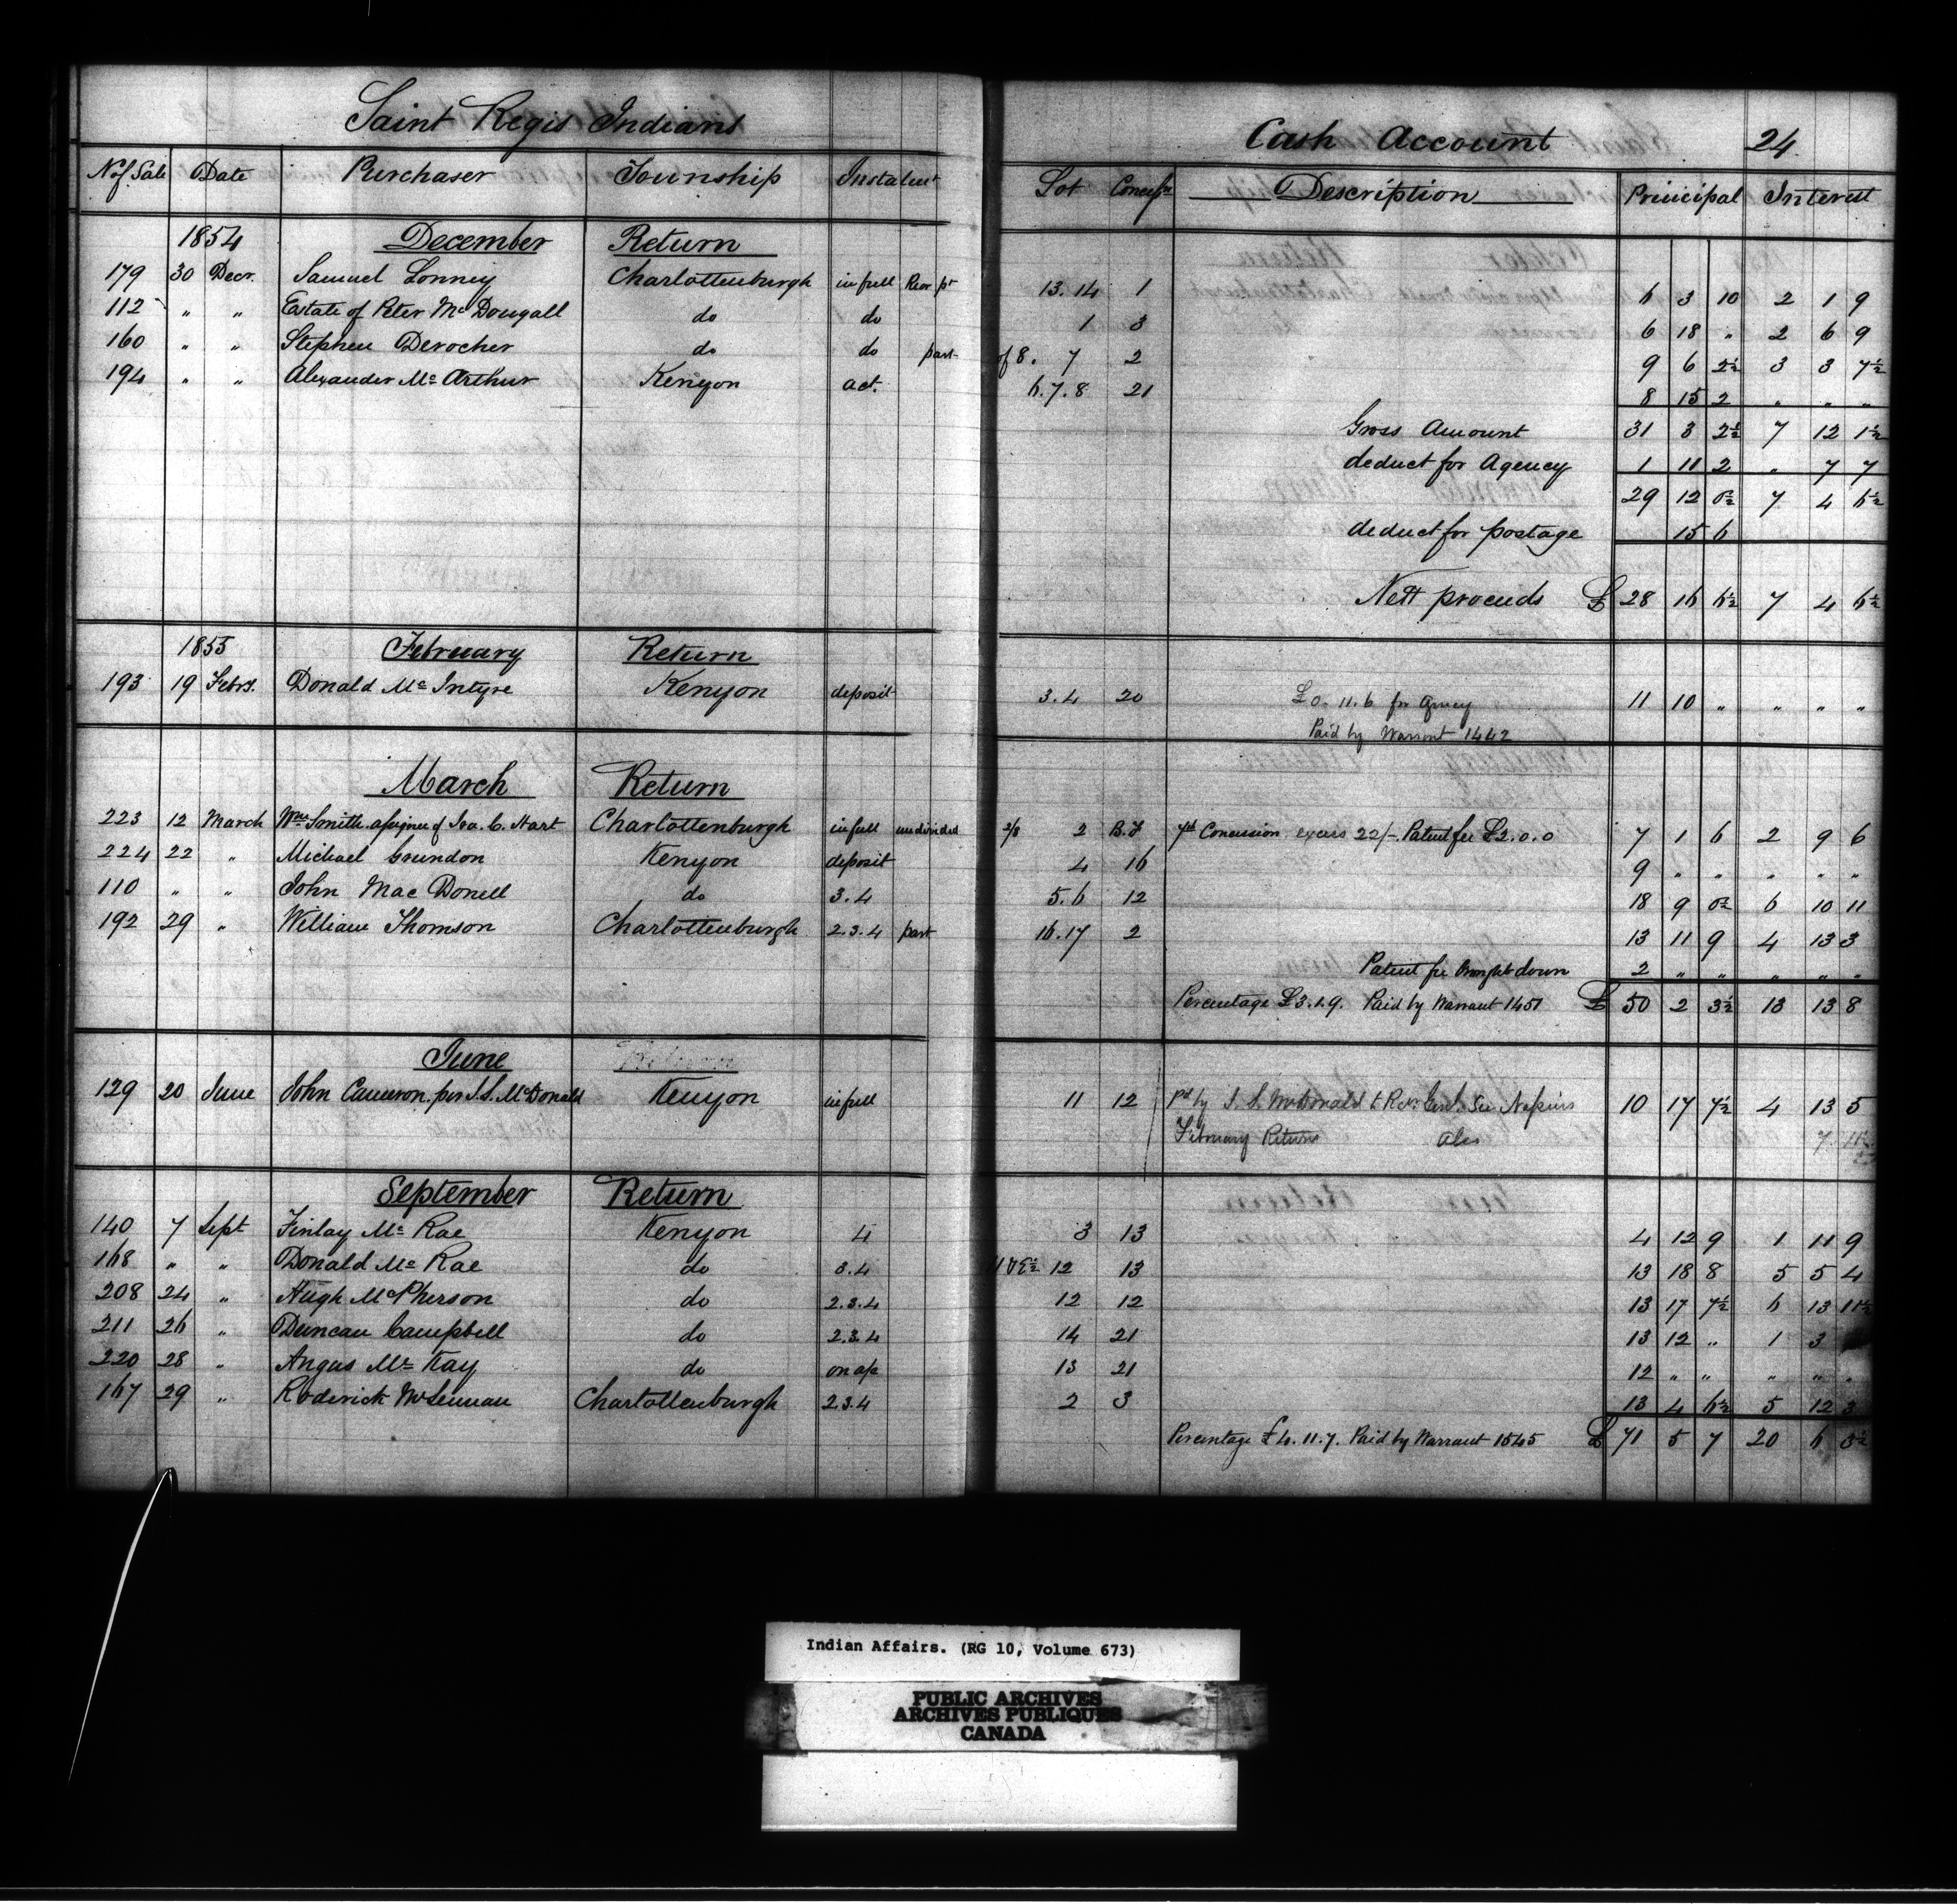 Saint Regis Indians Cash Account 24
No of Sale Date Purchaser Township Instalmt Lot Concessn Description Principal Interest
1854 December Return
179 30 Decr. Samuel Lonney Charlottenburgh in full Rear pt 13.14 1 6 3 10 2 1 9
112 " " Estate of Peter McDougall do do 1 3 6 18 " 2 6 9
160 " " Stephen Derocher do do part of 8. 7 2 9 6 2½ 3 3 7½
194 " " Alexander McArthur Kenyon act. 6.7.8 21 8 15 2 " " "
Gross Amount 31 3 2½ 7 12 1½
deduct for Agency 1 11 2 " 7 7
29 12 0½ 7 4 6½
deduct for postage 15 6
Nett proceeds £ 28 16 6½ 7 4 6½
1855 February Return
193 19 Febry. Donald McIntyre Kenyon deposit 3.4 20 £0.11.6 for Agency 11 10 " " " "
Paid by Warrant 1442
March Return
223 12 March Wm Smith assignee of Ira. C. Hart Charlottenburgh in full undivided 2/8 2 B.F 7th Concession excess 22/-. Patent fee £2.0.0 7 1 6 2 9 6
224 22 " Michael Grundon Kenyon deposit 4 16 9 " " " " "
110 " " John MacDonell do 3.4 5.6 12 18 9 0½ 6 10 11
192 29 " William Thomson Charlottenburgh 2.3.4 part 16.17 2 13 11 9 4 13 3
Patent fee brought down 2 " " " " "
Percentage £3.1.9. Paid by Warrant 1451 £ 50 2 3½ 13 13 8
June Return
129 20 June John Cameron. per J.S. McDonald Kenyon in full 11 12 Pd by J. S. McDonald to Recr Genl. See Napiers 10 17 7½ 4 13 5
February Return 7 11½
September Return
140 7 Sept Finlay McRae Kenyon 4 3 13 4 12 9 1 11 9
168 " " Donald McRae do 3.4 E½ 12 13 13 18 8 5 5 4
208 24 " Hugh McPherson do 2.3.4 12 12 13 17 7½ 6 13 11½
211 26 " Duncan Campbell do 2.3.4 14 21 13 12 " 1 3
220 28 " Angus McKay do on a/c 13 21 12 " " " " "
167 29 " Roderick McLennan Charlottenburgh 2.3.4 2 3 13 4 6½ 5 12 3
Percentage £4.11.7. Paid by Warrant 1545 £ 71 5 7 20 6 3½
Indian Affairs. (RG 10, Volume 673)
PUBLIC ARCHIVES
ARCHIVES PUBLIQUES
CANADA